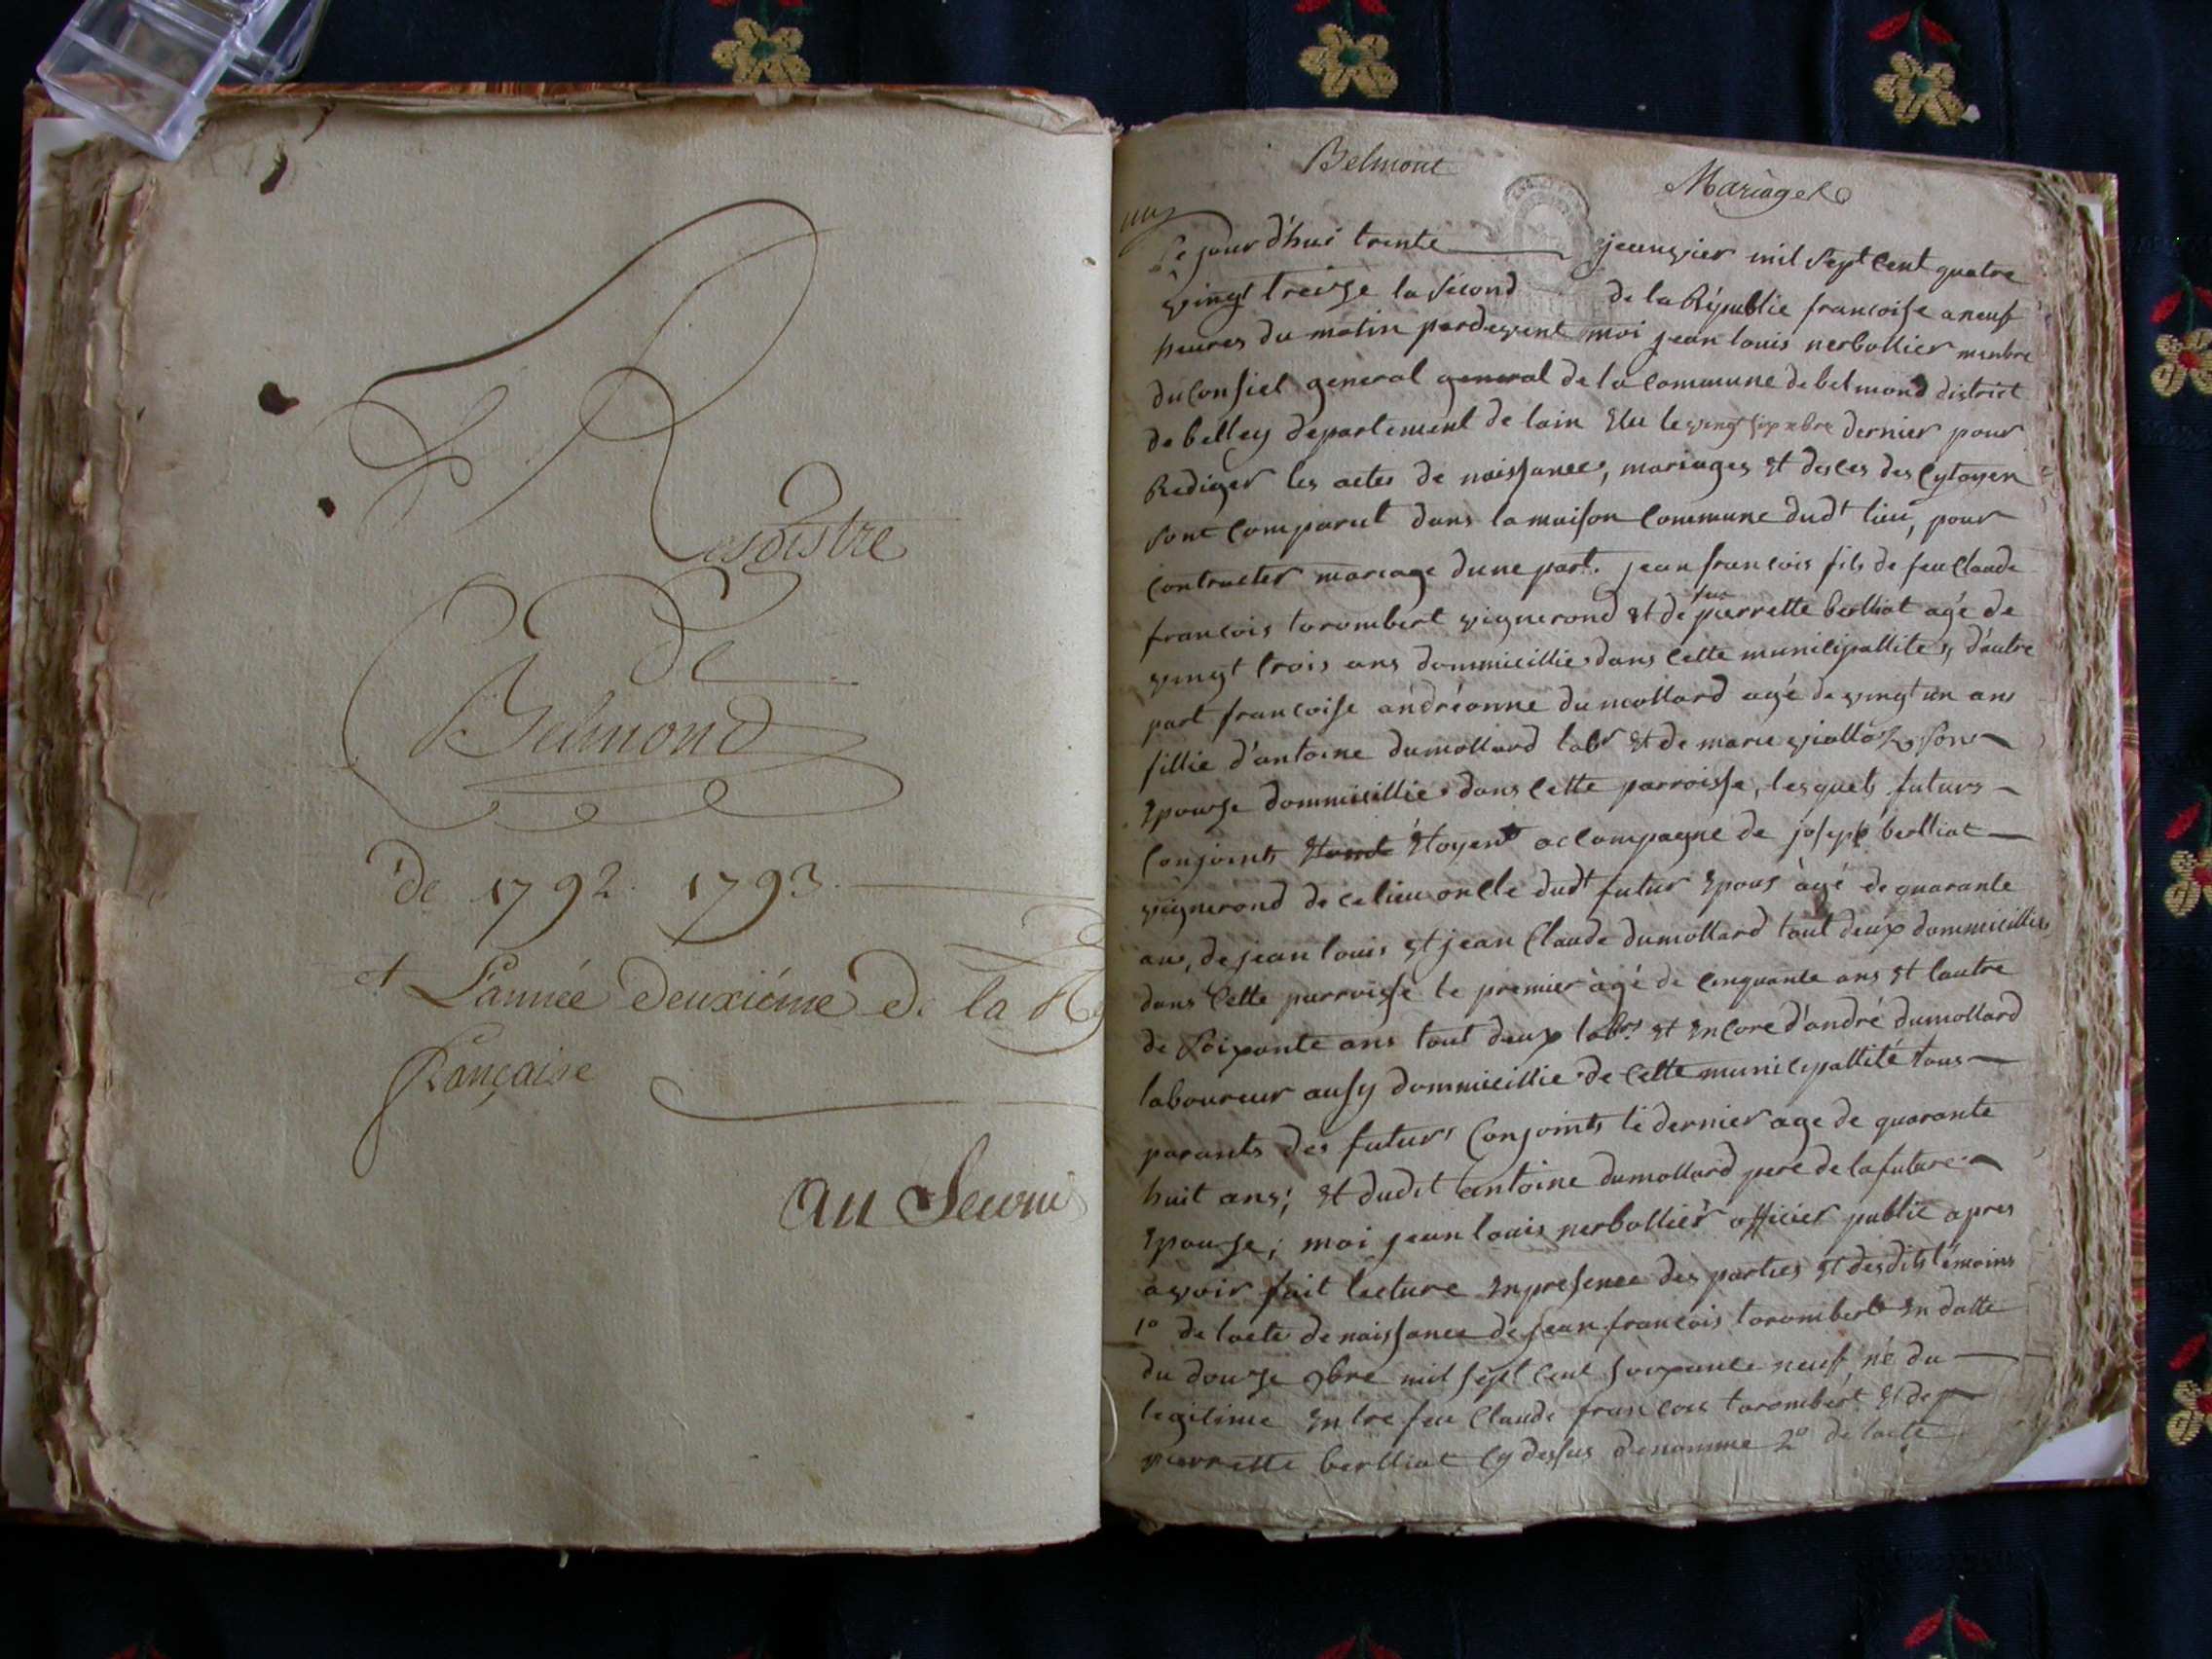 Regîstre
de
Belmond
de 1792. 1793.
et L'année deuxiéme de la Re
française
au Secour
Belmont
Mariages
Ce jourd'hui trente jeanvier mil sept cent quatre
vingt treize la second de la Républic francoise a neuf
heures du matin pardevent moi jean louis nerbollier menbre
du Consiel general general de la commune de belmond district
de belley departement de lain Elu le vingt dernier pour
Rediger les actes de naissances, mariages et desces des Cytoyen
sont comparut dans la maison commune dudt lieu, pour
contracter mariage dune part. jean francois fils de feu Claude
francois torombert vignerond et de feue pierrette berlliat agé de
vingt trois ans dommicillié dans cette municipallité, d'autre
part francoise andréanne dumollard agé de vingt un ans
fillie d'antoine dumollard labr et de marie viallaz son
Epouze dommicillié dans cette parroisse, lesquels futurs
conjoints étoyent accompagné de joseph berlliat
vignerond de ce lieu oncle dudt futur Epous àgé de quarante
ans, de jean louis et jean Claude dumollard tout deux dommicillié
dans cette parroisse le premier àgé de cinquante ans et lautre
de soixante ans tout deux labrs et encore d'andré dumollard
laboureur ausy dommicillié de cette municipallité tous
parants des futurs conjoints le dernier age de quarante
huit ans; et dudit antoine dumollard pere de la future
Epouze; moi jean louis nerbollier officier public apres
avoir fait lecture en presence des parties et desdits témoins
1º de lacte de naissance de jean francois torombert en datte
du douze 9bre mil sept cent soixante neuf, né du
legitime entre feu Claude francois torombert et de
pierrette berlliat cy dessus denommé 2º de lacte